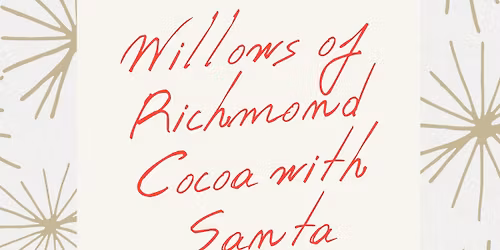 Willows of
Richmond
Cocoa with
Santa